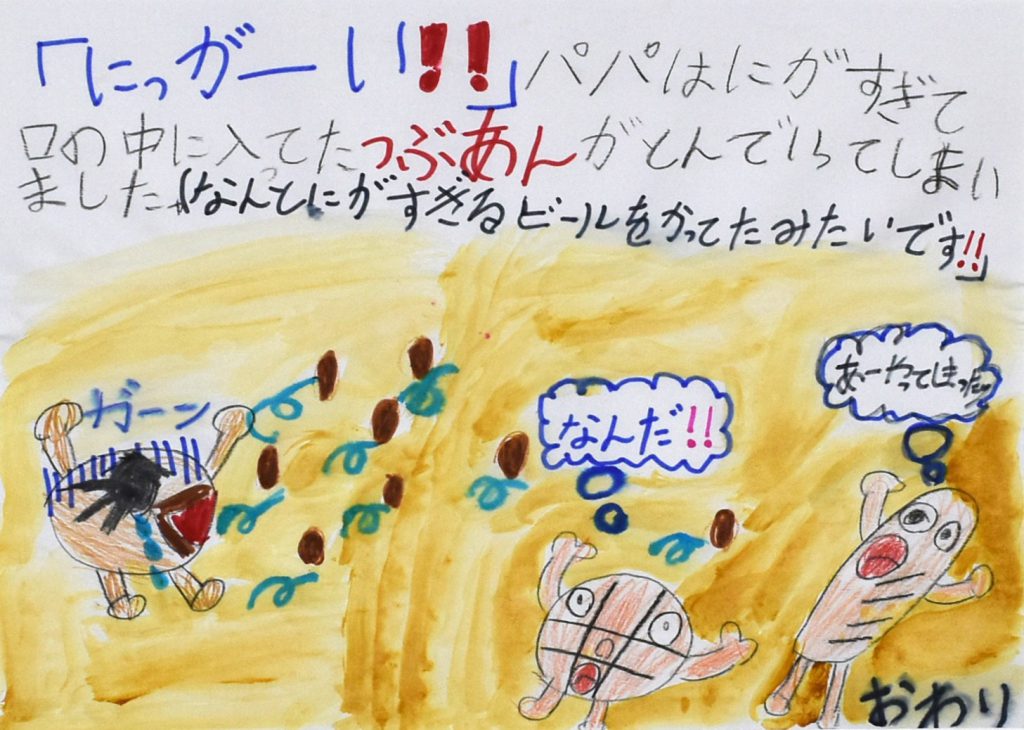 「にっがーい!!」パパはにがすぎて
口の中に入ってたつぶあんがとんでいってしまい
ました。(なんとにがすぎるビールをかってたみたいです!!」
ガーン
なんだ!!
あーやってしまった…
おわり